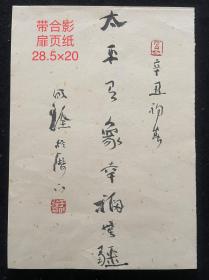 带合影
扉页纸
28.5×20
辛丑初春
太平有象幸福无疆